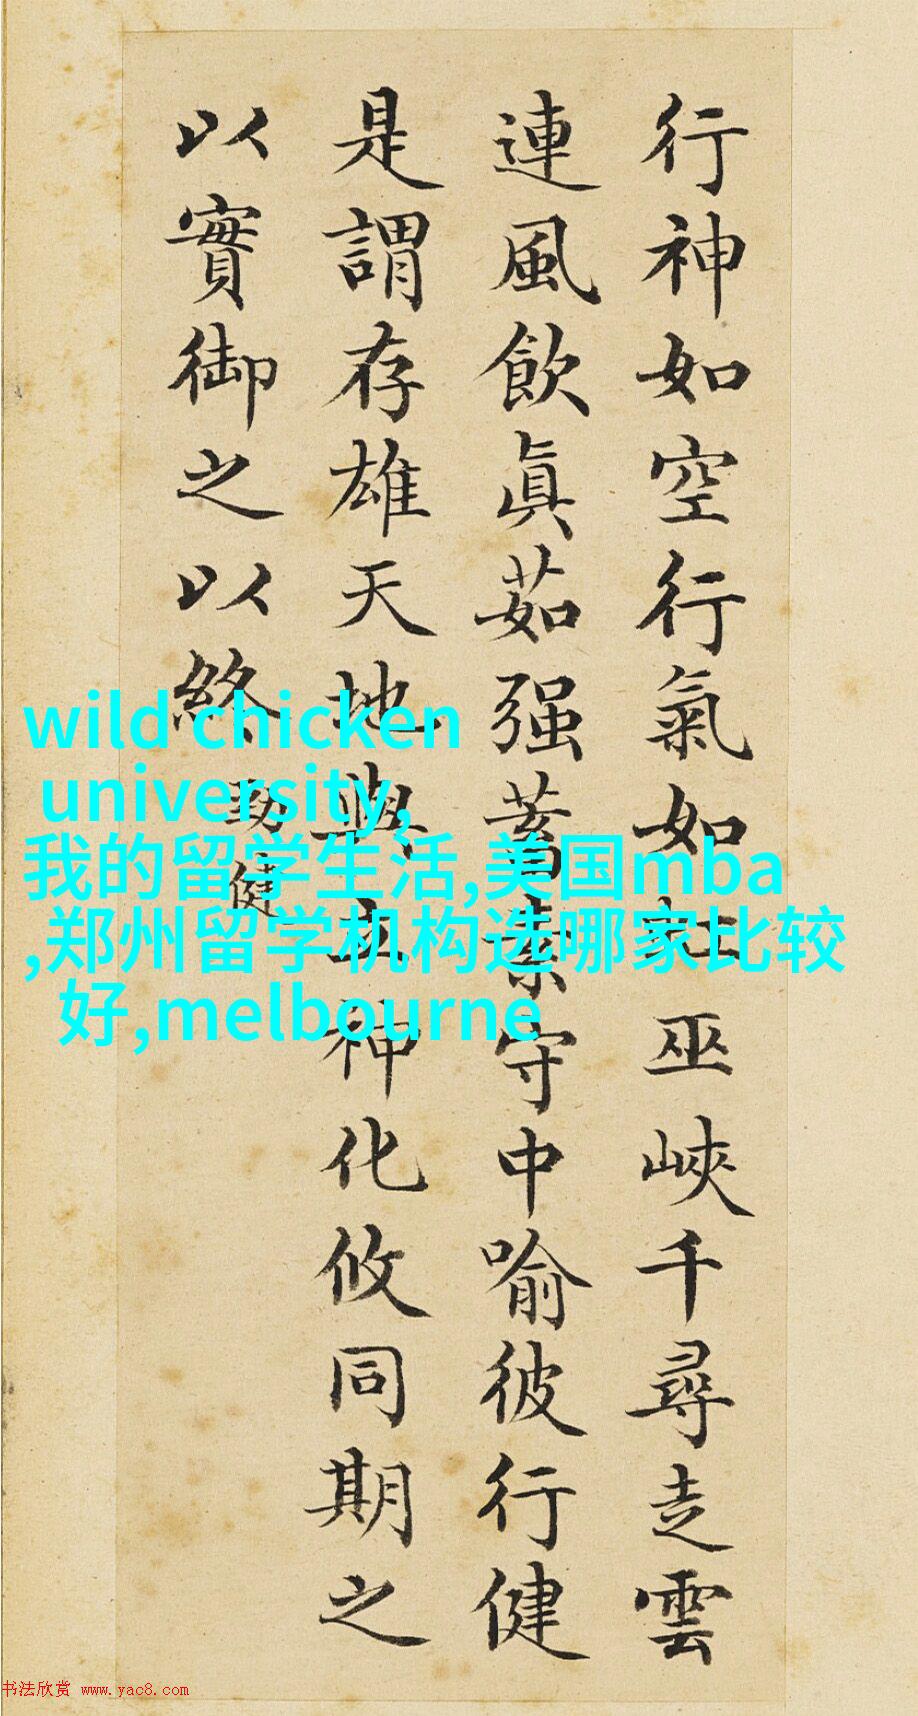 行神如空行氣如虹巫峽千尋走雲
連風飲眞茹强蓄素守中喻彼行健
是謂存雄天地與立神化攸同期之
以實御之以終 勁健
wild chicken
university,
我的留学生活,美国mba
,郑州留学机构选哪家比较
好,melbourne
书法欣赏 www.yac8.com